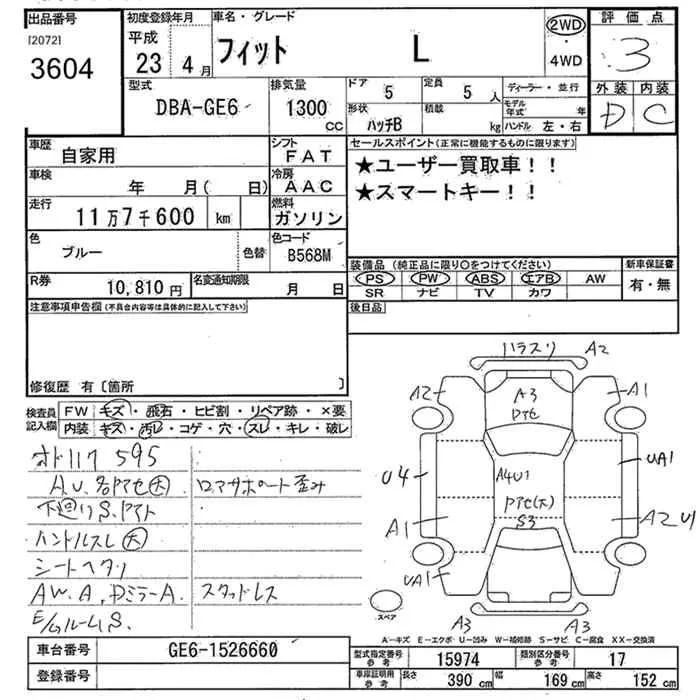 出品番号
[2072]
3604
初度登録年月
平成
23年 4月
車名・グレード
フィット L
2WD
・
4WD
評価点
3
外装 内装
D C
型式
DBA-GE6
排気量
1300 CC
ドア 5
定員 5 人
形状 ハッチB
積載 kg
ディーラー・並行
モデル年式 年
ハンドル 左・右
車歴 自家用
シフト FAT
車検 年 月( 日)
冷房 AAC
走行 11万7千600 km
燃料 ガソリン
色 ブルー 色替
色コード B568M
R券 10,810円
名変通知期限 月 日
セールスポイント(正常に機能するものに限ります)
★ユーザー買取車!!
★スマートキー!!
装備品(純正品に限り○をつけてください)
新車保証書
PS PW ABS エアB AW
SR ナビ TV カワ
有・無
後日品
注意事項申告欄(不具合内容等は具体的に記入して下さい)
修復歴 有〔箇所 〕
検査員記入欄
FW キズ・飛石・ヒビ割・リペア跡・×要
内装 キズ・汚レ・コゲ・穴・スレ・キレ・破レ
595
A.U.各アセ大 ロアサポート歪み
下廻りS.アト
ハンドルスレ大
シートヘタリ
AW.A,DミラーA. スタッドレス
E/gルームS.
A2
A2
A3
アセ
A1
U4
UA1
A4U1
アセ(大)
S3
A1
A2 U1
UA1
スペア
A3
A3
A-キズ E-エクボ U-凹み W-補修跡 S-サビ C-腐食 XX-交換済
車台番号 GE6-1526660
登録番号
型式指定番号参考 15974
類別区分番号参考 17
車庫証明用参考 長さ 390cm 幅 169cm 高さ 152cm